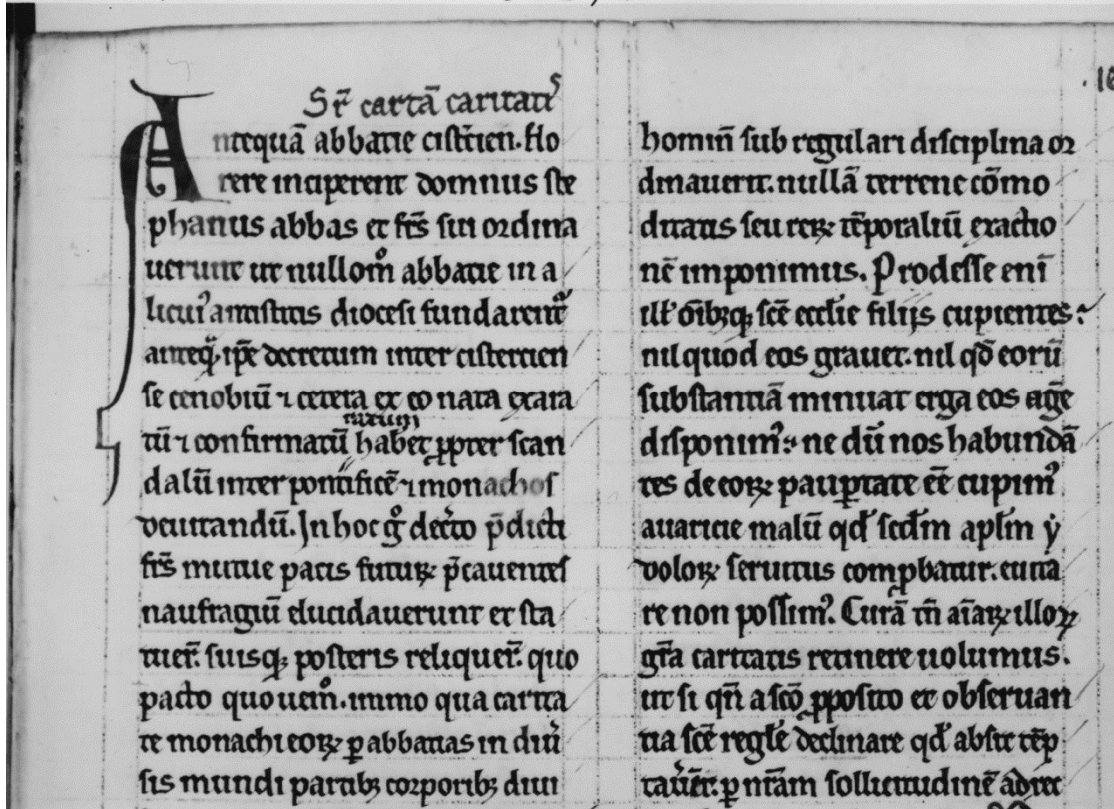 Sr̄ cartā caritatꝭ
Antequā abbatie cistrīen. flo
rere inciperent domnus ste
phanus abbas et frs̄ sui ordina
uerunt ut nullom̊ abbatie in a
licuiꝰ antistitis diocesi fundarentᷣ
anteq̄ꝫ. ip̄e decretum inter cistercien
se cenobiū ⁊ cetera ex eo nata exara
tū ⁊ confirmatū
ratum
habet ꝓpter scan
dalū inter pontificē ⁊ monachos
deuitandū. In hoc gͦ decͬto p̄dicti
frs̄ mutue pacis futuꝝ p̄cauentes
naufragiū elucidauerunt et sta
tuer̄. suisqꝫ posteris reliquer̄. quo
pacto quouem̊. immo qua carita
te monachi eoꝝ ꝑ abbatias in diu̾
sis mundi partibꝫ corporibꝫ diui
· 16
homin̄ sub regulari disciplina or
dinauerit. nullā terrene cōmo
ditatis seu reꝝ tēporaliū exactio
nē imponimus. Prodesse enī
ill' oībꝫqꝫ scē eccl'ie filijs cupientes.
nil quod eos grauet. nil qd̄ eorū
substantiā minuat erga eos aḡe
disponimꝰ. ne dū nos habundā
tes de eoꝝ pauꝑtate eē cupimꝰ
auaricie malū qd̄ scd̄m apl'm ẏ
doloꝝ seruitus comꝓbatur. euita
re non possimꝰ. Curā tn̄ aīaꝝ illoꝝ
gr̄a caritatis retinere uolumus.
ut si qn̄ a scō ꝓposito et obseruan
tia scē regl'e declinare qd̄ absit tēp
tau̾er̄t. ꝑ nr̄am sollicitudinē ad rec